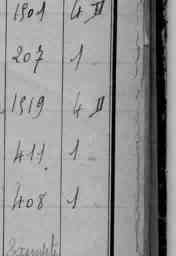 1901 4 II
207 1
1919 4 II
411 1
408 1